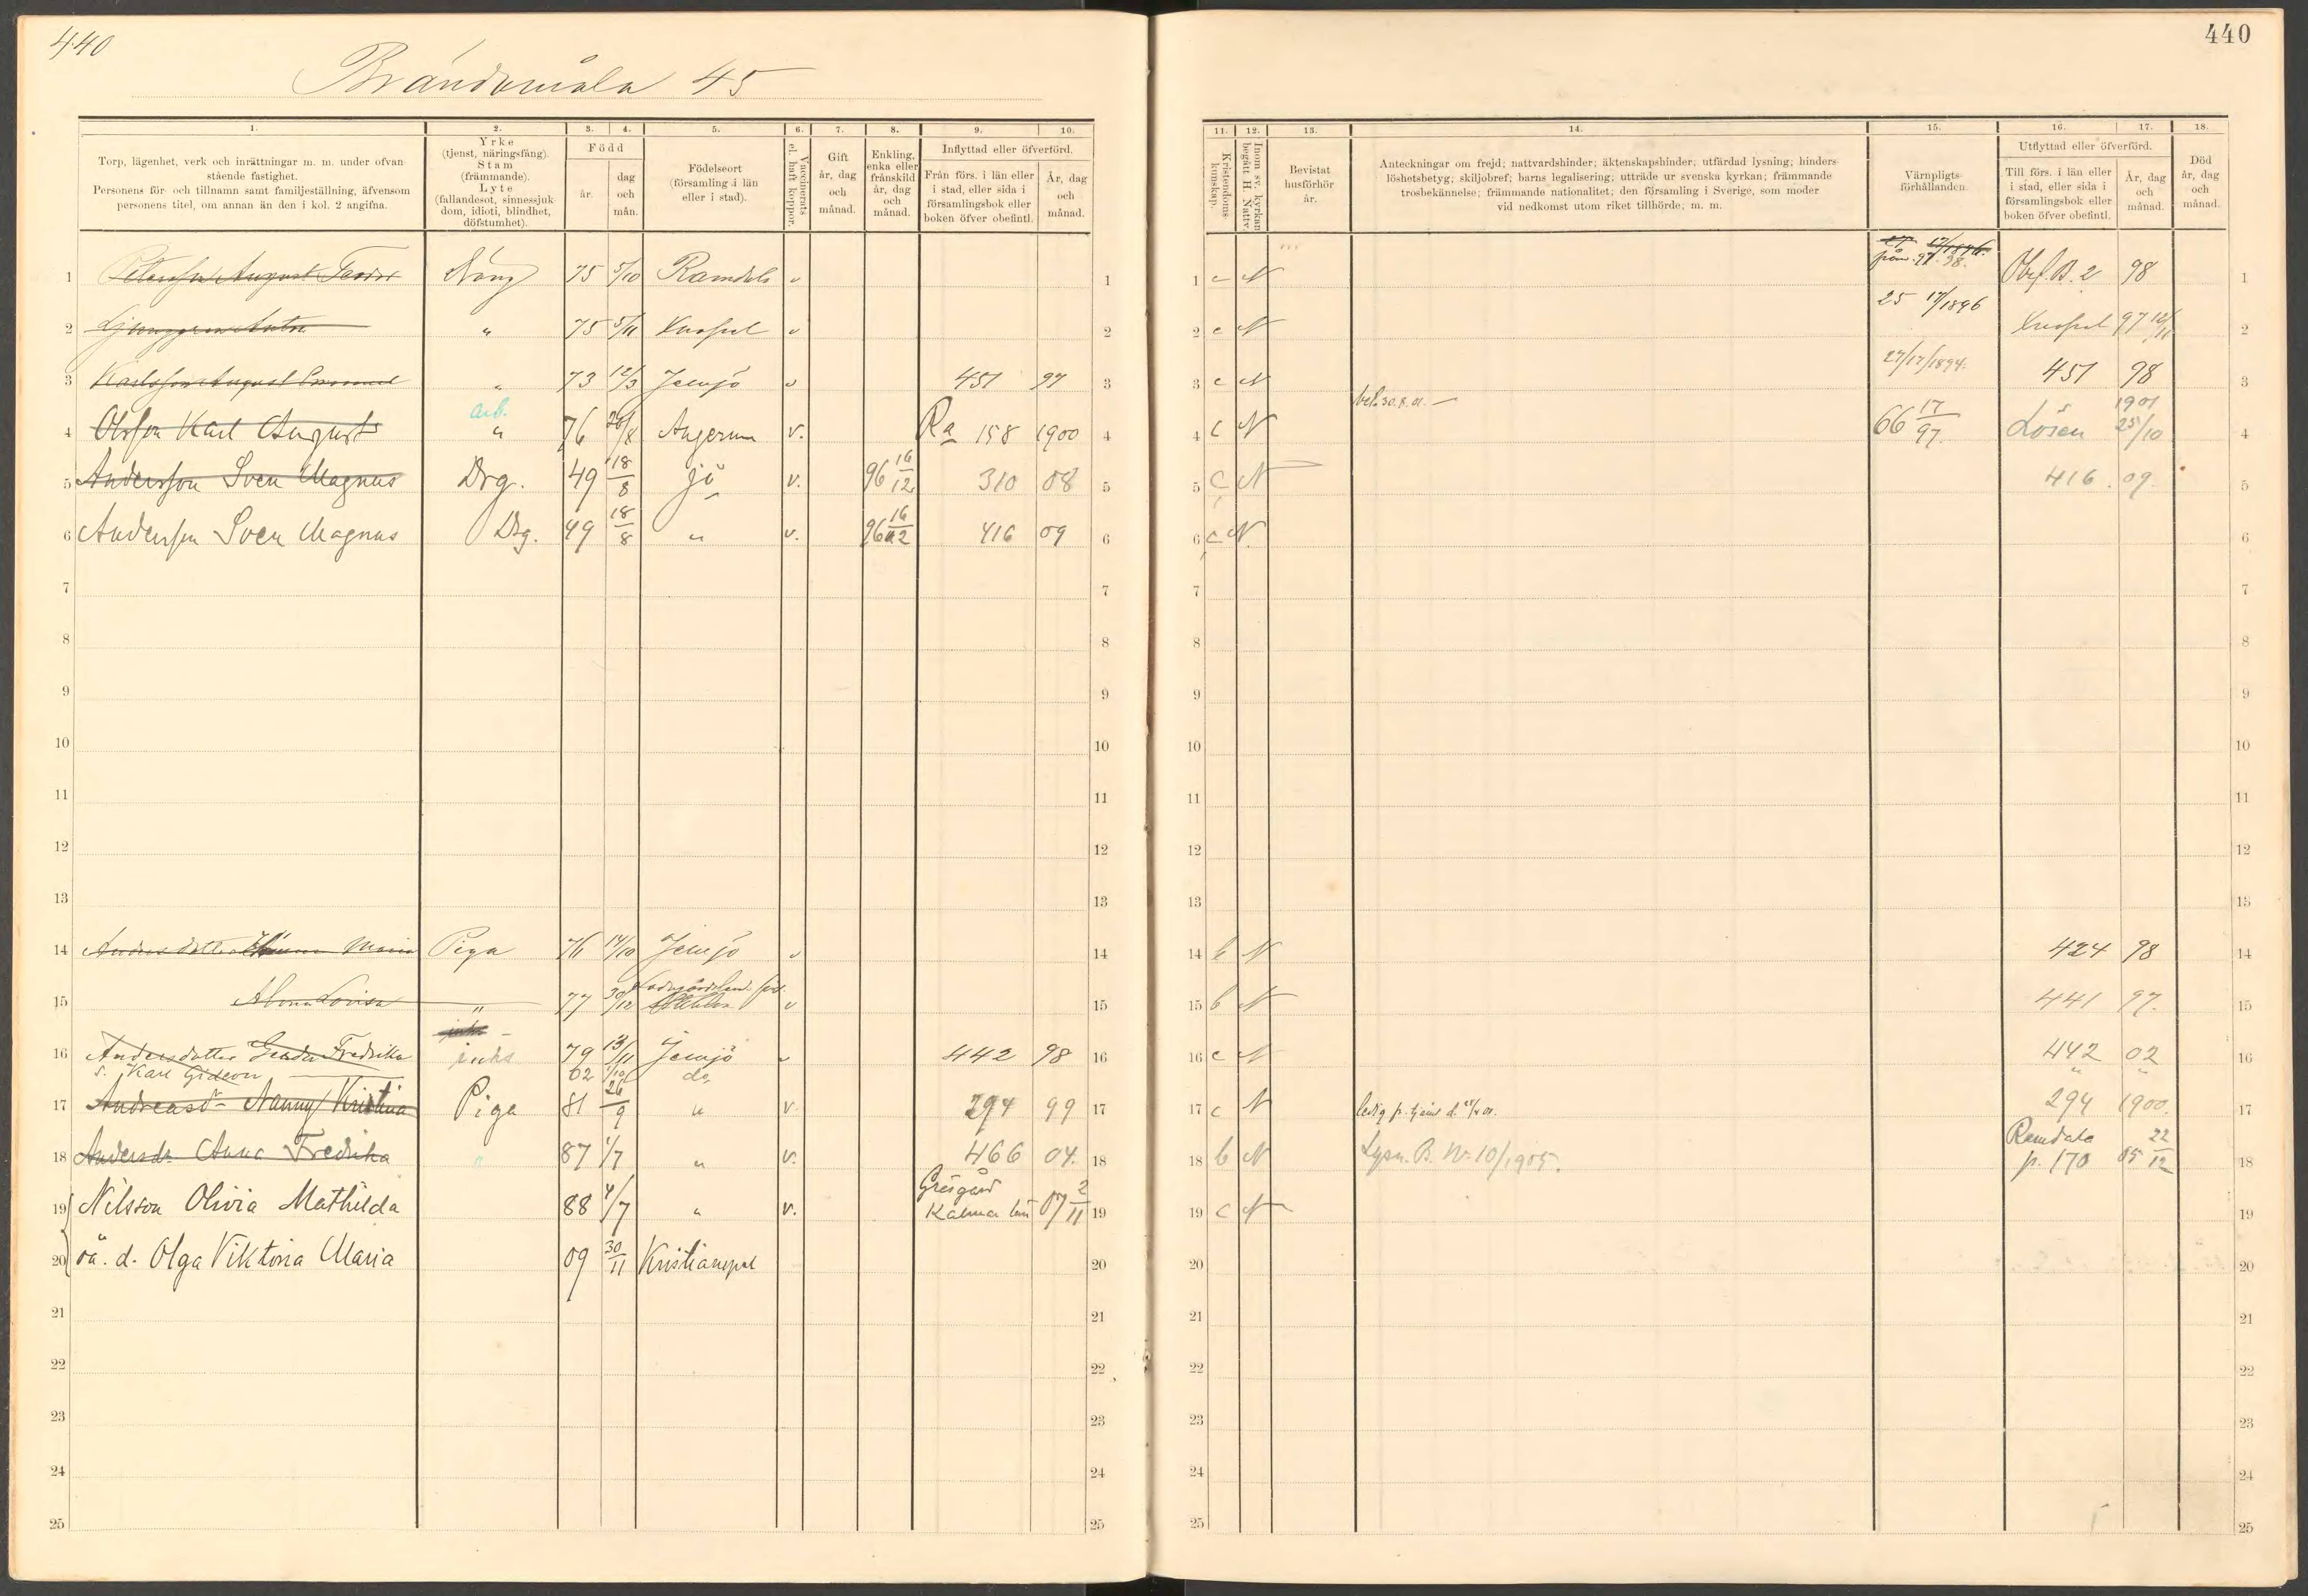 440
440
Brändamåla 45
1. 2. 3. 4. 5. 6. 7. 8. 9. 10.
Torp, lägenhet, verk och inrättningar m. m. under ofvanstående fastighet.
Personens för- och tillnamn samt familjeställning, äfvensom personens titel, om annan än den i kol. 2 angifna.
Yrke (tjenst, näringsfång).
Stam (främmande).
Lyte (fallandesot, sinnessjukdom, idioti, blindhet, döfstumhet).
Född
år.
dag och mån.
Födelseort (församling i län eller i stad).
Vaccinerats el. haft koppor.
Gift år, dag och månad.
Enkling, enka eller frånskild år, dag och månad.
Inflyttad eller öfverförd.
Från förs. i län eller i stad, eller sida i församlingsbok eller boken öfver obefintl.
År, dag och månad.
11. 12. 13. 14. 15. 16. 17. 18.
Kristendomskunskap.
Inom sv. kyrkan begått H. Nattv.
Bevistat husförhör år.
Anteckningar om frejd; nattvardshinder; äktenskapshinder; utfärdad lysning; hinderslöshetsbetyg; skiljobref; barns legalisering; utträde ur svenska kyrkan; främmande trosbekännelse; främmande nationalitet; den församling i Sverige, som moder vid nedkomst utom riket tillhörde; m. m.
Värnpligtsförhållanden.
Utflyttad eller öfverförd.
Till förs. i län eller i stad, eller sida i församlingsbok eller boken öfver obefintl.
År, dag och månad.
Död år, dag och månad.
1 Petersson August Teodor Dräng 75 5/10 Ramdala v 1
1 c N Obef. B. 2 98 1
2 Ljunggren Anton " 75 5/11 v 2
2 c N 25 17/1896 97 12/11 2
3 Karlsson August Emanuel " 73 12/3 Jemjö v 451 97 3
3 c N 27/17/1894. 451 98 3
4 Olsson Karl August arb. " 76 26/8 Augerum v. Ra 158 1900 4
4 c N 66 17/97. Lösen 1901 25/10 4
5 Andersson Sven Magnus Drg. 49 18/8 Jö v. 96 16/12 310 08 5
5 c N 416 09. 5
6 Andersson Sven Magnus Drg. 49 18/8 " v. 96 16/12 416 09 6
6 c N. 6
7 7 7 7
8 8 8 8
9 9 9 9
10 10 10 10
11 11 11 11
12 12 12 12
13 13 13 13
14 Maria Piga 76 14/10 Jemjö v 14
14 b N 424 98 14
15 Alma Lovisa " 77 30/12 v 15
15 b N 441 97. 15
16 Andersdotter Gerda Fredrika inhs 79 13/11 Jemjö v 442 98 16
s. Karl Gideon 02 1/10 do
16 c N 442 02 16
" "
17 Andreasdr Nanny Kristina Piga 81 26/9 " v 294 99 17
17 c N 294 1900. 17
18 Andersdr Anna Fredrika " 87 1/7 " v. 466 04. 18
18 b N Lysn. B. Nr 10/1905. Ramdala p. 170 05 22/12 18
19 Nilsson Olivia Mathilda 88 4/7 " v. Gräsgård Kalmar län 07 2/11 19
19 c N 19
20 oä. d. Olga Viktoria Maria 09 30/11 Kristianopel 20
20 20
21 21 21 21
22 22 22 22
23 23 23 23
24 24 24 24
25 25 25 25